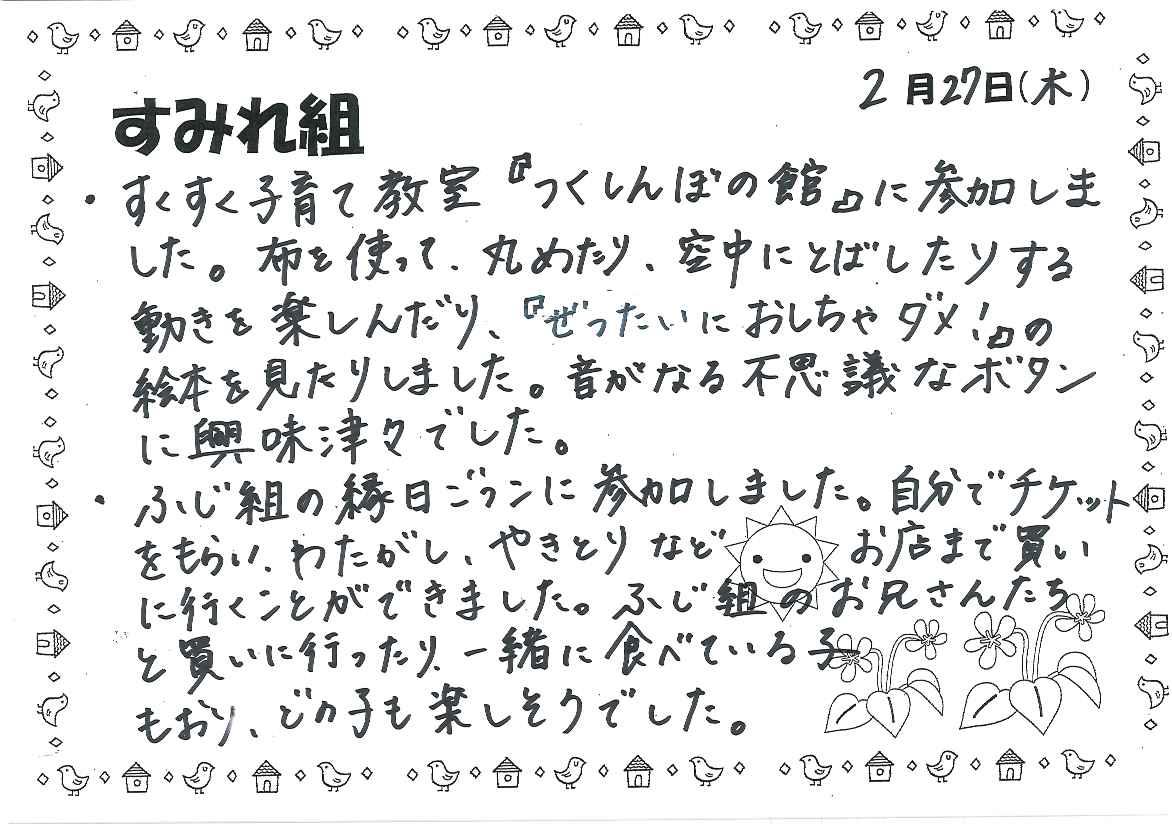 2月27日(木)
すみれ組
・すくすく子育て教室『つくしんぼの館』に参加しま
した。布を使って、丸めたり、空中にとばしたりする
動きを楽しんだり、『ぜったいにおしちゃダメ!』の
絵本を見たりしました。音がなる不思議なボタン
に興味津々でした。
・ふじ組の縁日ごっこに参加しました。自分でチケット
をもらい、わたがし、やきとりなど お店まで買い
に行くことができました。ふじ組のお兄さんたち
と買いに行ったり、一緒に食べている子
もおり、どの子も楽しそうでした。